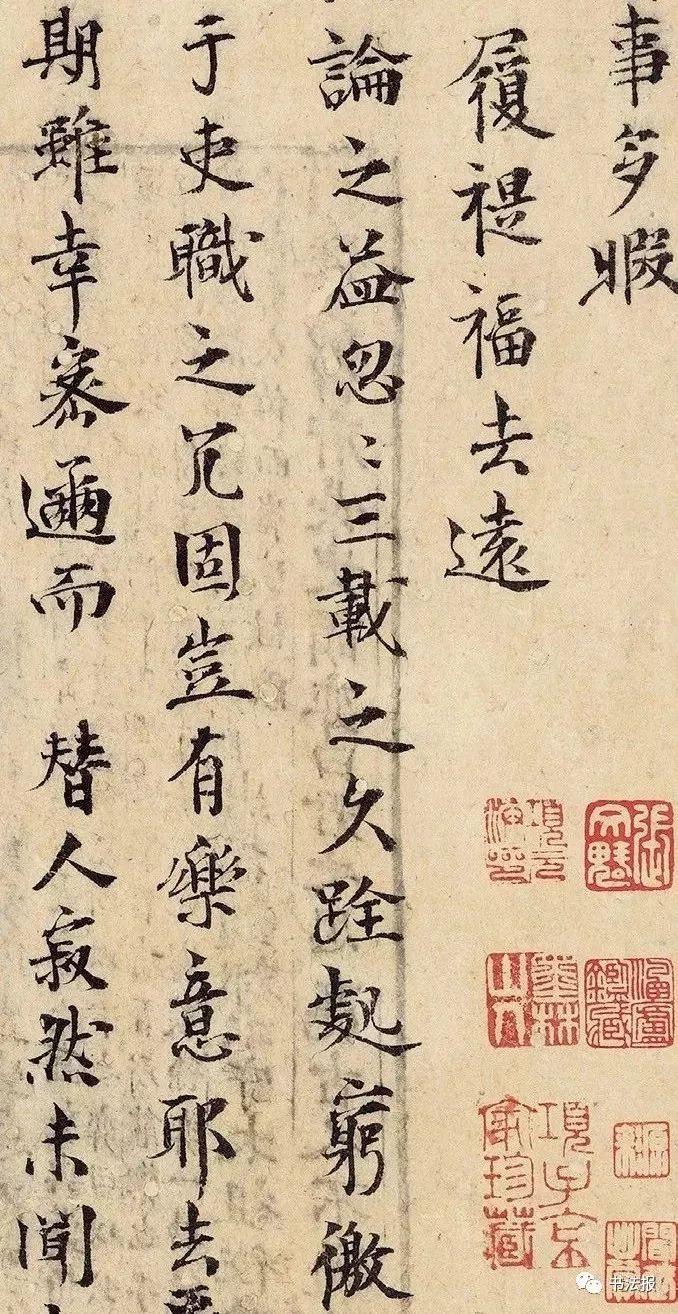 事多暇
履禔福去遠
論之益忽〻三載之久跧處窮徼
于吏職之冗固豈有樂意耶去
期雖幸密邇而 替人寂然未聞
項子京家珍藏
书法报